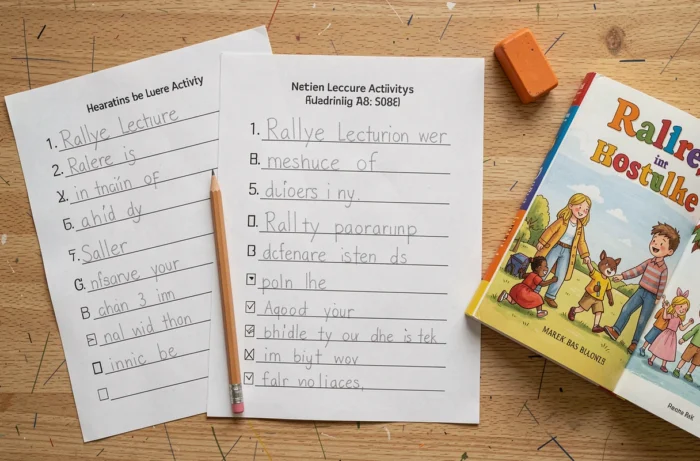 Hearatins be Luere Activity
1. Rallye Lecture
2. Ralere is
in tnaiin of
6. ahid dy
7. Saller
G. nfsarve your
B ahan 3 im
nal wid thon
innic be
Netien Leccure Actiivitys
1. Rallye Lecturion wer
8. meshuce of
5. duioers i ny.
Rall ty paorarınp
dcfenare isten ds
poln lhe
Aqood your
bhidle ty ou dhe is tek
im biyt wov
falr no liaces,
Rallre
int
Hostulhe
MAREK BAS BLIONIS